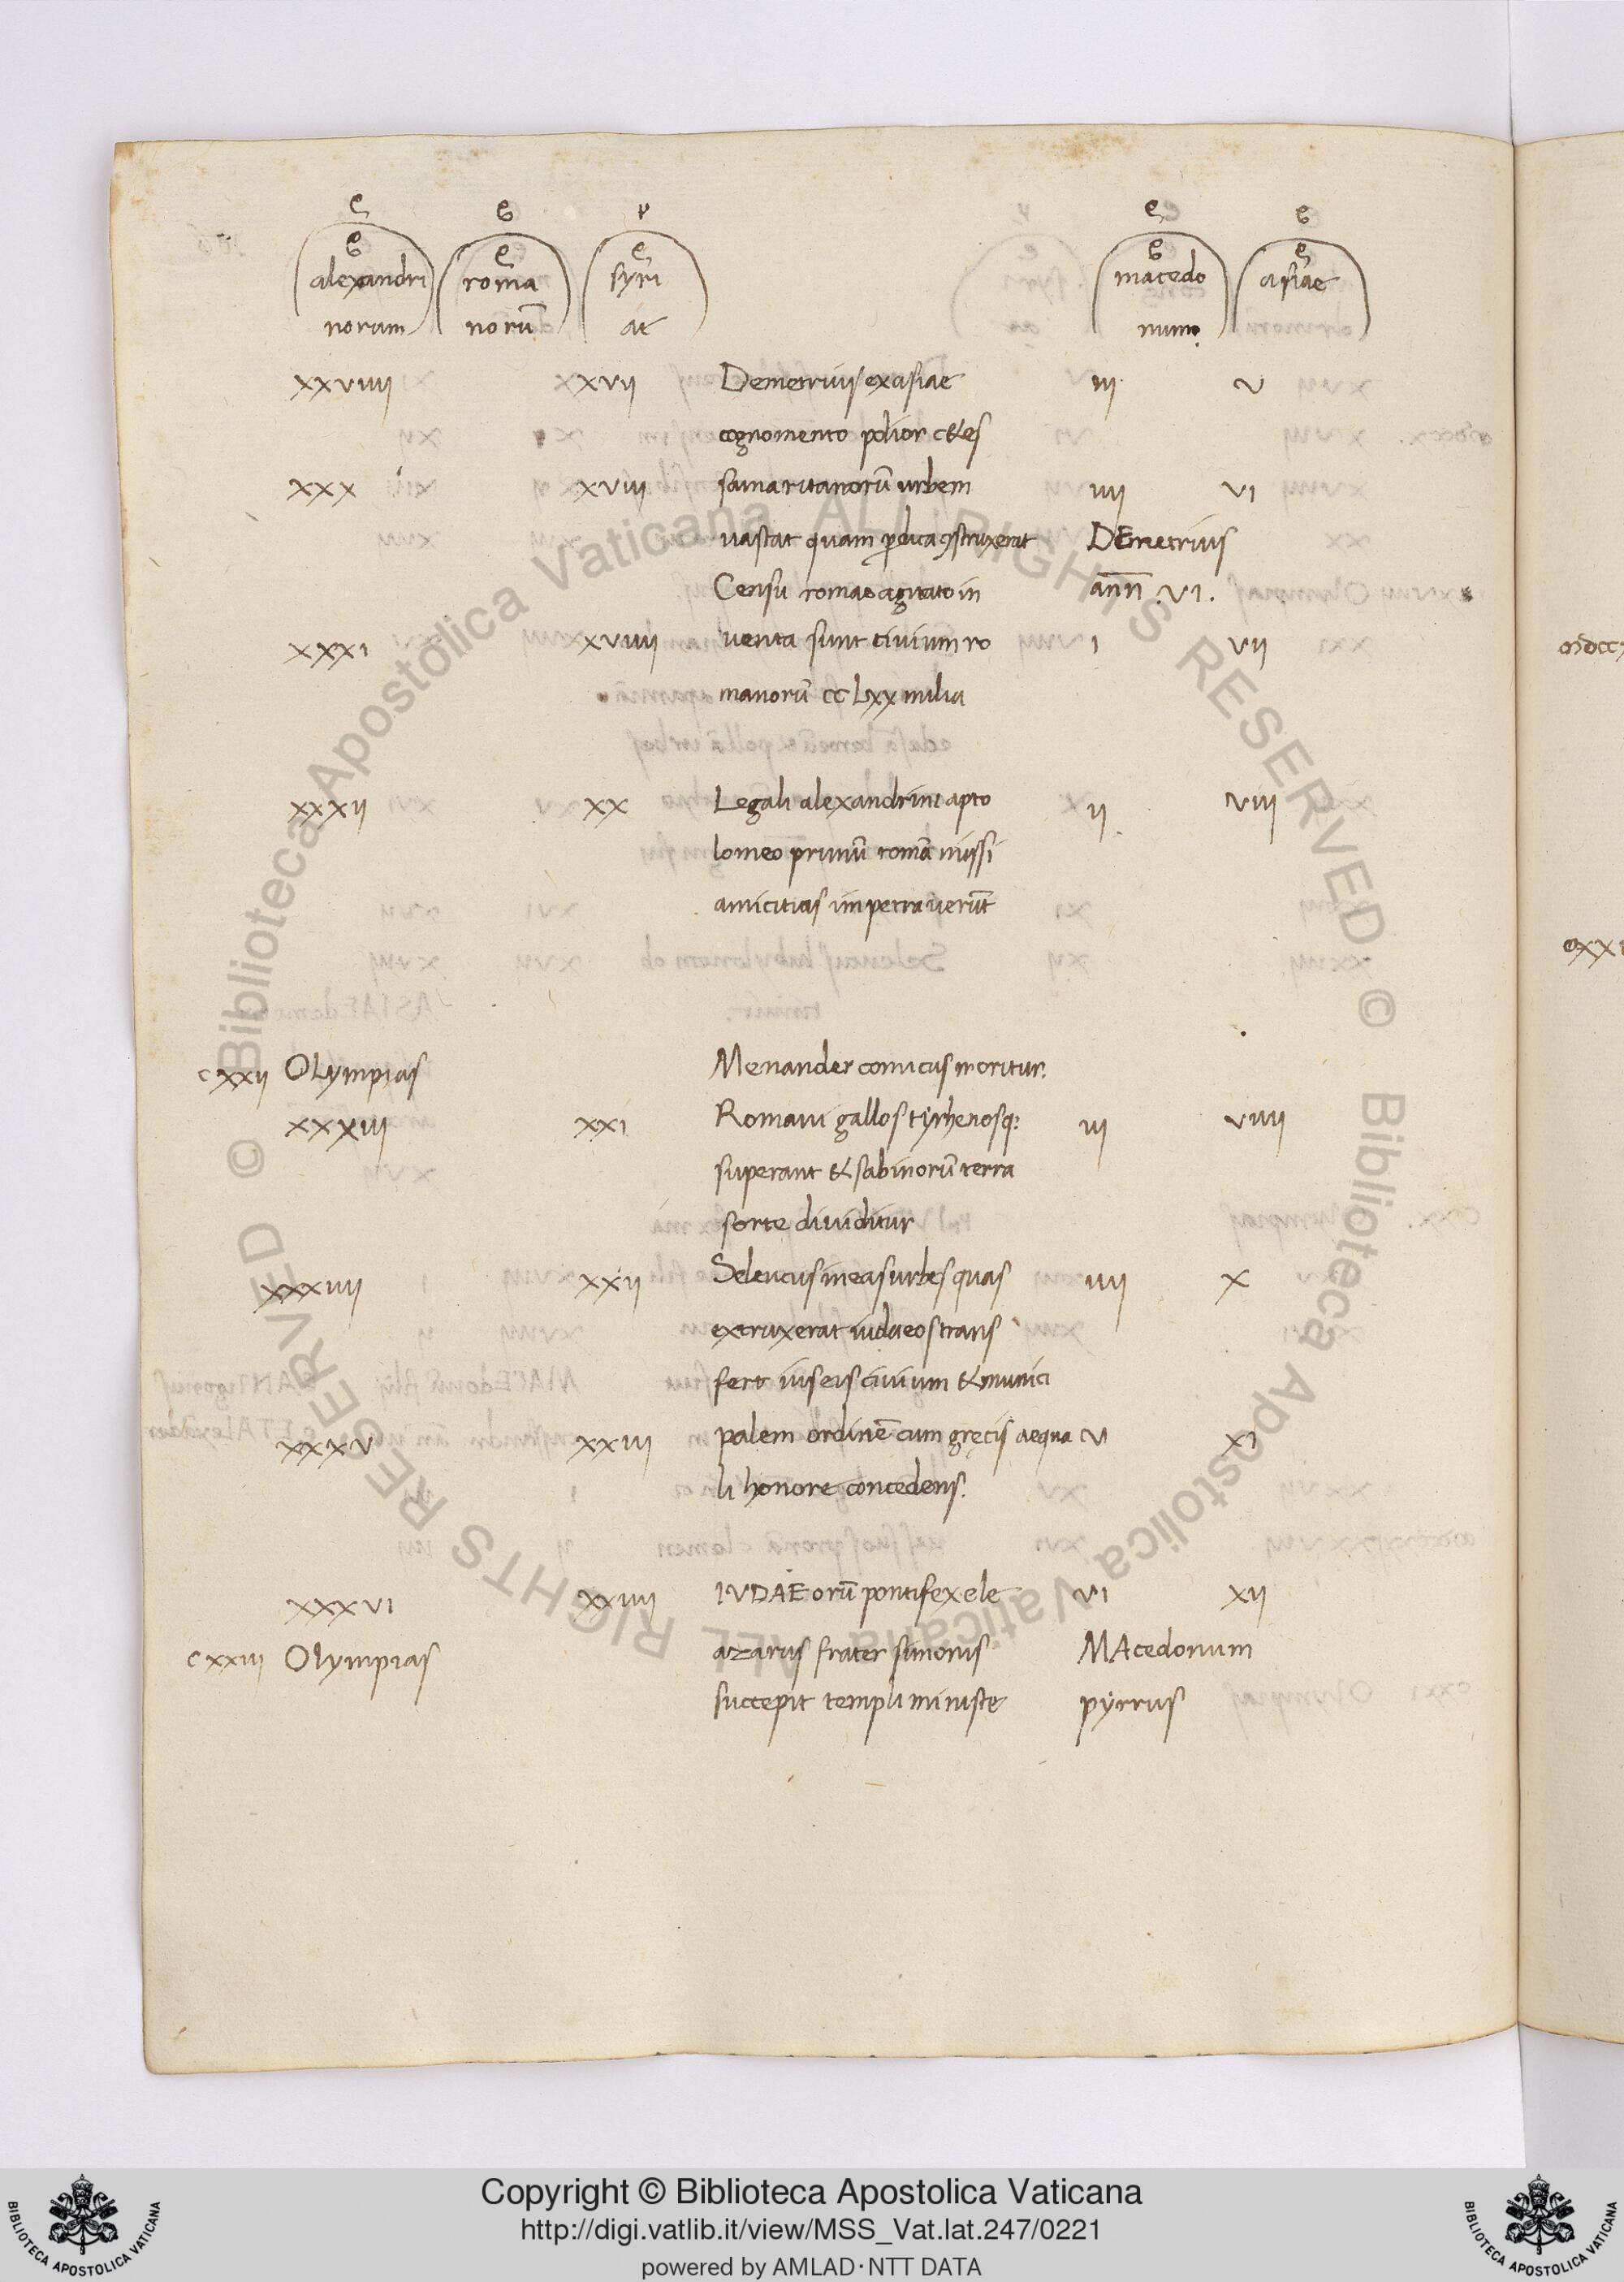 ę e v ę e
e ę ę e ę
alexandri roma syri macedo asiae
norum norū ae num
xxviiii xxvii Demetrius rex asiae iii v
cognomento polior cetes
xxx xviii samaritanorū urbem iiii vi
vastat quam pdica ꝯstruxerat DEmetrius
Censu romae agitato in añn .vi.
xxxi xviiii venta sunt civium ro i vii
manorū cc Lxx milia
xxxii xx Legati alexandrini a pto ii viii
lomeo primū romā missi
amicitias impetraverūt
cxxii OLympias Menander comicus moritur.
xxxiii xxi Romani gallos tyrhenosq: iii viiii
superant & sabinorū terra
sorte dividitur
xxxiiii xxii Seleucus in eas urbes quas iiii x
extruxerat iudaeos trans
fert ius eis civium & munici
xxxv xxiii palem ordinē cum gręcis aequa v xi
li honore concedens.
xxxvi xxiiii IVDAEorū pontifex ele vi xii
cxxiii Olympias azarus frater simonis MAcedonum
succepit templi ministe pyrrus
Copyright © Biblioteca Apostolica Vaticana
http://digi.vatlib.it/view/MSS_Vat.lat.247/0221
powered by AMLAD·NTT DATA
BIBLIOTECA APOSTOLICA VATICANA
BIBLIOTECA APOSTOLICA VATICANA
© Biblioteca Apostolica Vaticana ALL RIGHTS RESERVED
© Biblioteca Apostolica Vaticana ALL RIGHTS RESERVED